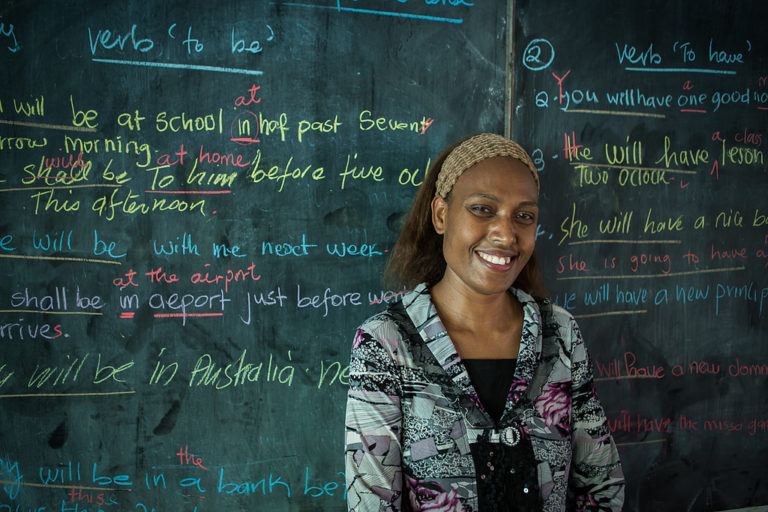 verb 'to be'
will be at school in haf past Seven
at
rrow morning.
shall be To him before five
with
at home
This afternoon.
will be with me next week.
at the airport
shall be im aeport just before
rrives.
will be in Australia.
the
will be in a bank be
this
② verb 'To have'
2. you will have one good
Y a
a class
3. He will have lesson
Two oclock.
she will have a nice
she is going to have a
will have a new
will have a new
will have the